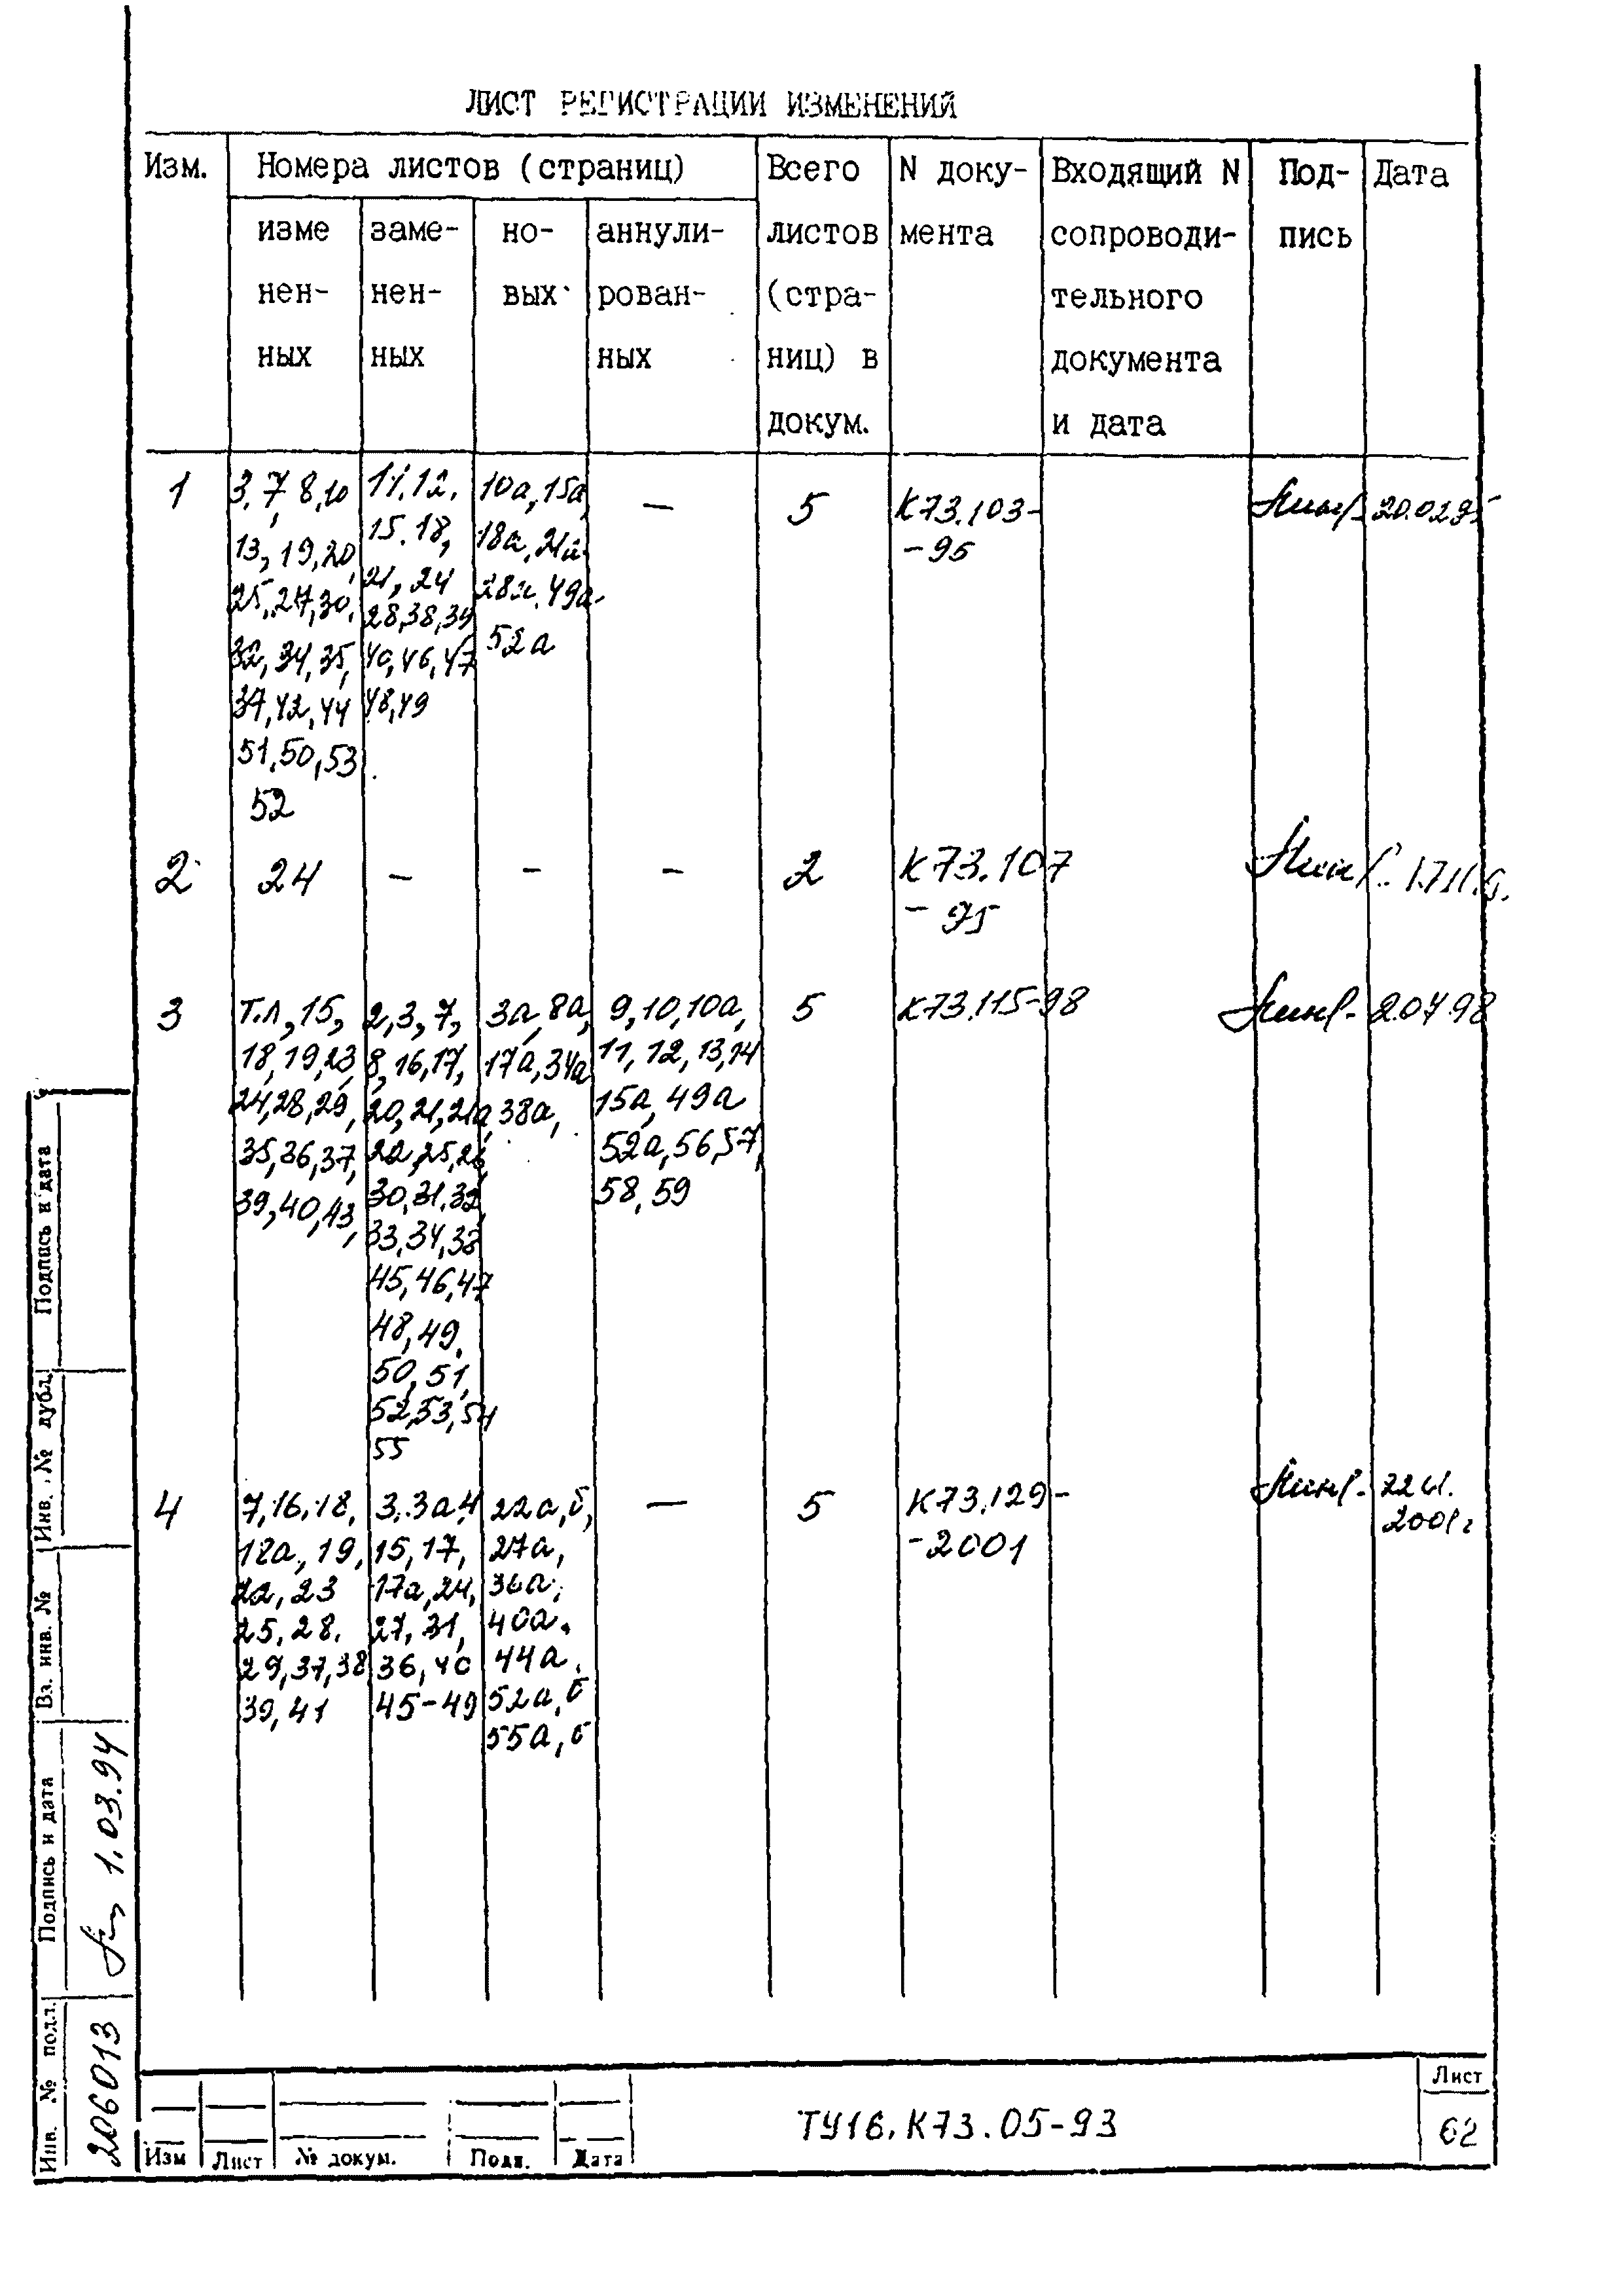 ЛИСТ РЕГИСТРАЦИИ ИЗМЕНЕНИЙ
Изм. Номера листов (страниц) Всего N доку- Входящий N Под- Дата
изме заме- но- аннули- листов мента сопроводи- пись
нен- нен- вых рован- (стра- тельного
ных ных ных ниц) в документа
докум. и дата
1
3,7,8,10
13,19,20,
25,27,30,
32,34,35,
37,42,44
51,50,53
52
11,12,
15,18,
21,24
28,38,39
40,46,47
48,49
10а,15а,
18а,21а
28а,49а,
52а
—
5
К73.103-
-95
2 24 — — — 2 К73.107
-95
3
Т.л,15,
18,19,23,
24,28,29,
35,36,37,
39,40,43,
2,3,7,
8,16,17,
20,21,21а,
22,25,26,
30,31,32,
33,34,38
45,46,47
48,49,
50,51,
52,53,54
55
3а,8а,
17а,34а
38а,
9,10,10а,
11,12,13,14
15а,49а
52а,56,57,
58,59
5
К73.115-98
2.04.98
4
7,16,18,
18а,19,
22,23
25,28,
29,37,38
39,41
3,3а,4
15,17,
17а,24,
27,31,
36,40
45-49
22а,б,
27а,
36а,
40а,
44а,
52а,б
55а,б
—
5
К73.129-
-2001
2001г
Подпись и дата
Инв. № дубл.
Вз. инв. №
Подпись и дата
1.03.94
Инв. № подл.
206013
Изм Лист № докум. Подп. Дата
ТУ16.К73.05-93
Лист
62